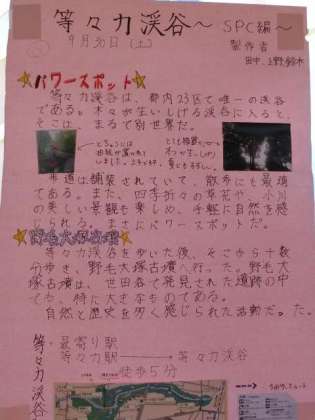 等々力渓谷〜SPC編〜
9月30日(土)
製作者
田中、上野、鈴木
☆パワースポット☆
等々力渓谷は、都内23区で唯一の渓谷
である。木々が生いしげる渓谷に入ると、
そこは、まるで別世界だ。
とちゅうには
歩道は舗装されていて、散歩にも最適
である。また、四季折々の草花や、小川
の美しい景観も楽しめ、手軽に自然を感
じられる、まさにパワースポットだ。
野毛大塚古墳
等々力渓谷を歩いた後、そこから十数
分歩き、野毛大塚古墳へ行った。野毛大
塚古墳は、世田谷で発見された遺跡の中
でも、特に大きなものである。
自然と歴史を多く感じられた活動だった。
等々力渓谷
最寄り駅
等々力駅→等々力渓谷
徒歩5分